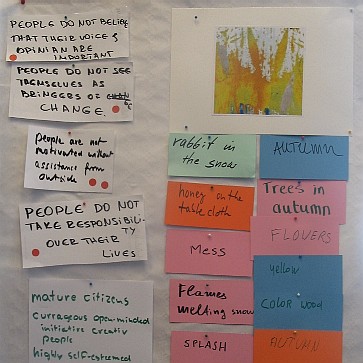 PEOPLE DO NOT BELIEVE
THAT THEIR VOICE &
OPINION ARE
IMPORTANT
PEOPLE DO NOT SEE
THEMSELVES AS
BRINGERS OF
CHANGE.
people are not
motivated without
assistance from
outside
PEOPLE DO NOT
TAKE RESPONSIBILI-
TY
OVER THEIR
LIVES
mature citizens
curragous open-minded
initiative creativ
people
highly self-esteemed
rabbit in
the snow
honey on the
table cloth
Mess
Flames
melting snow
SPLASH
AUTUMN
Trees in
autumn
FLOWERS
yellow
COLOR WOOD
AUTUMN